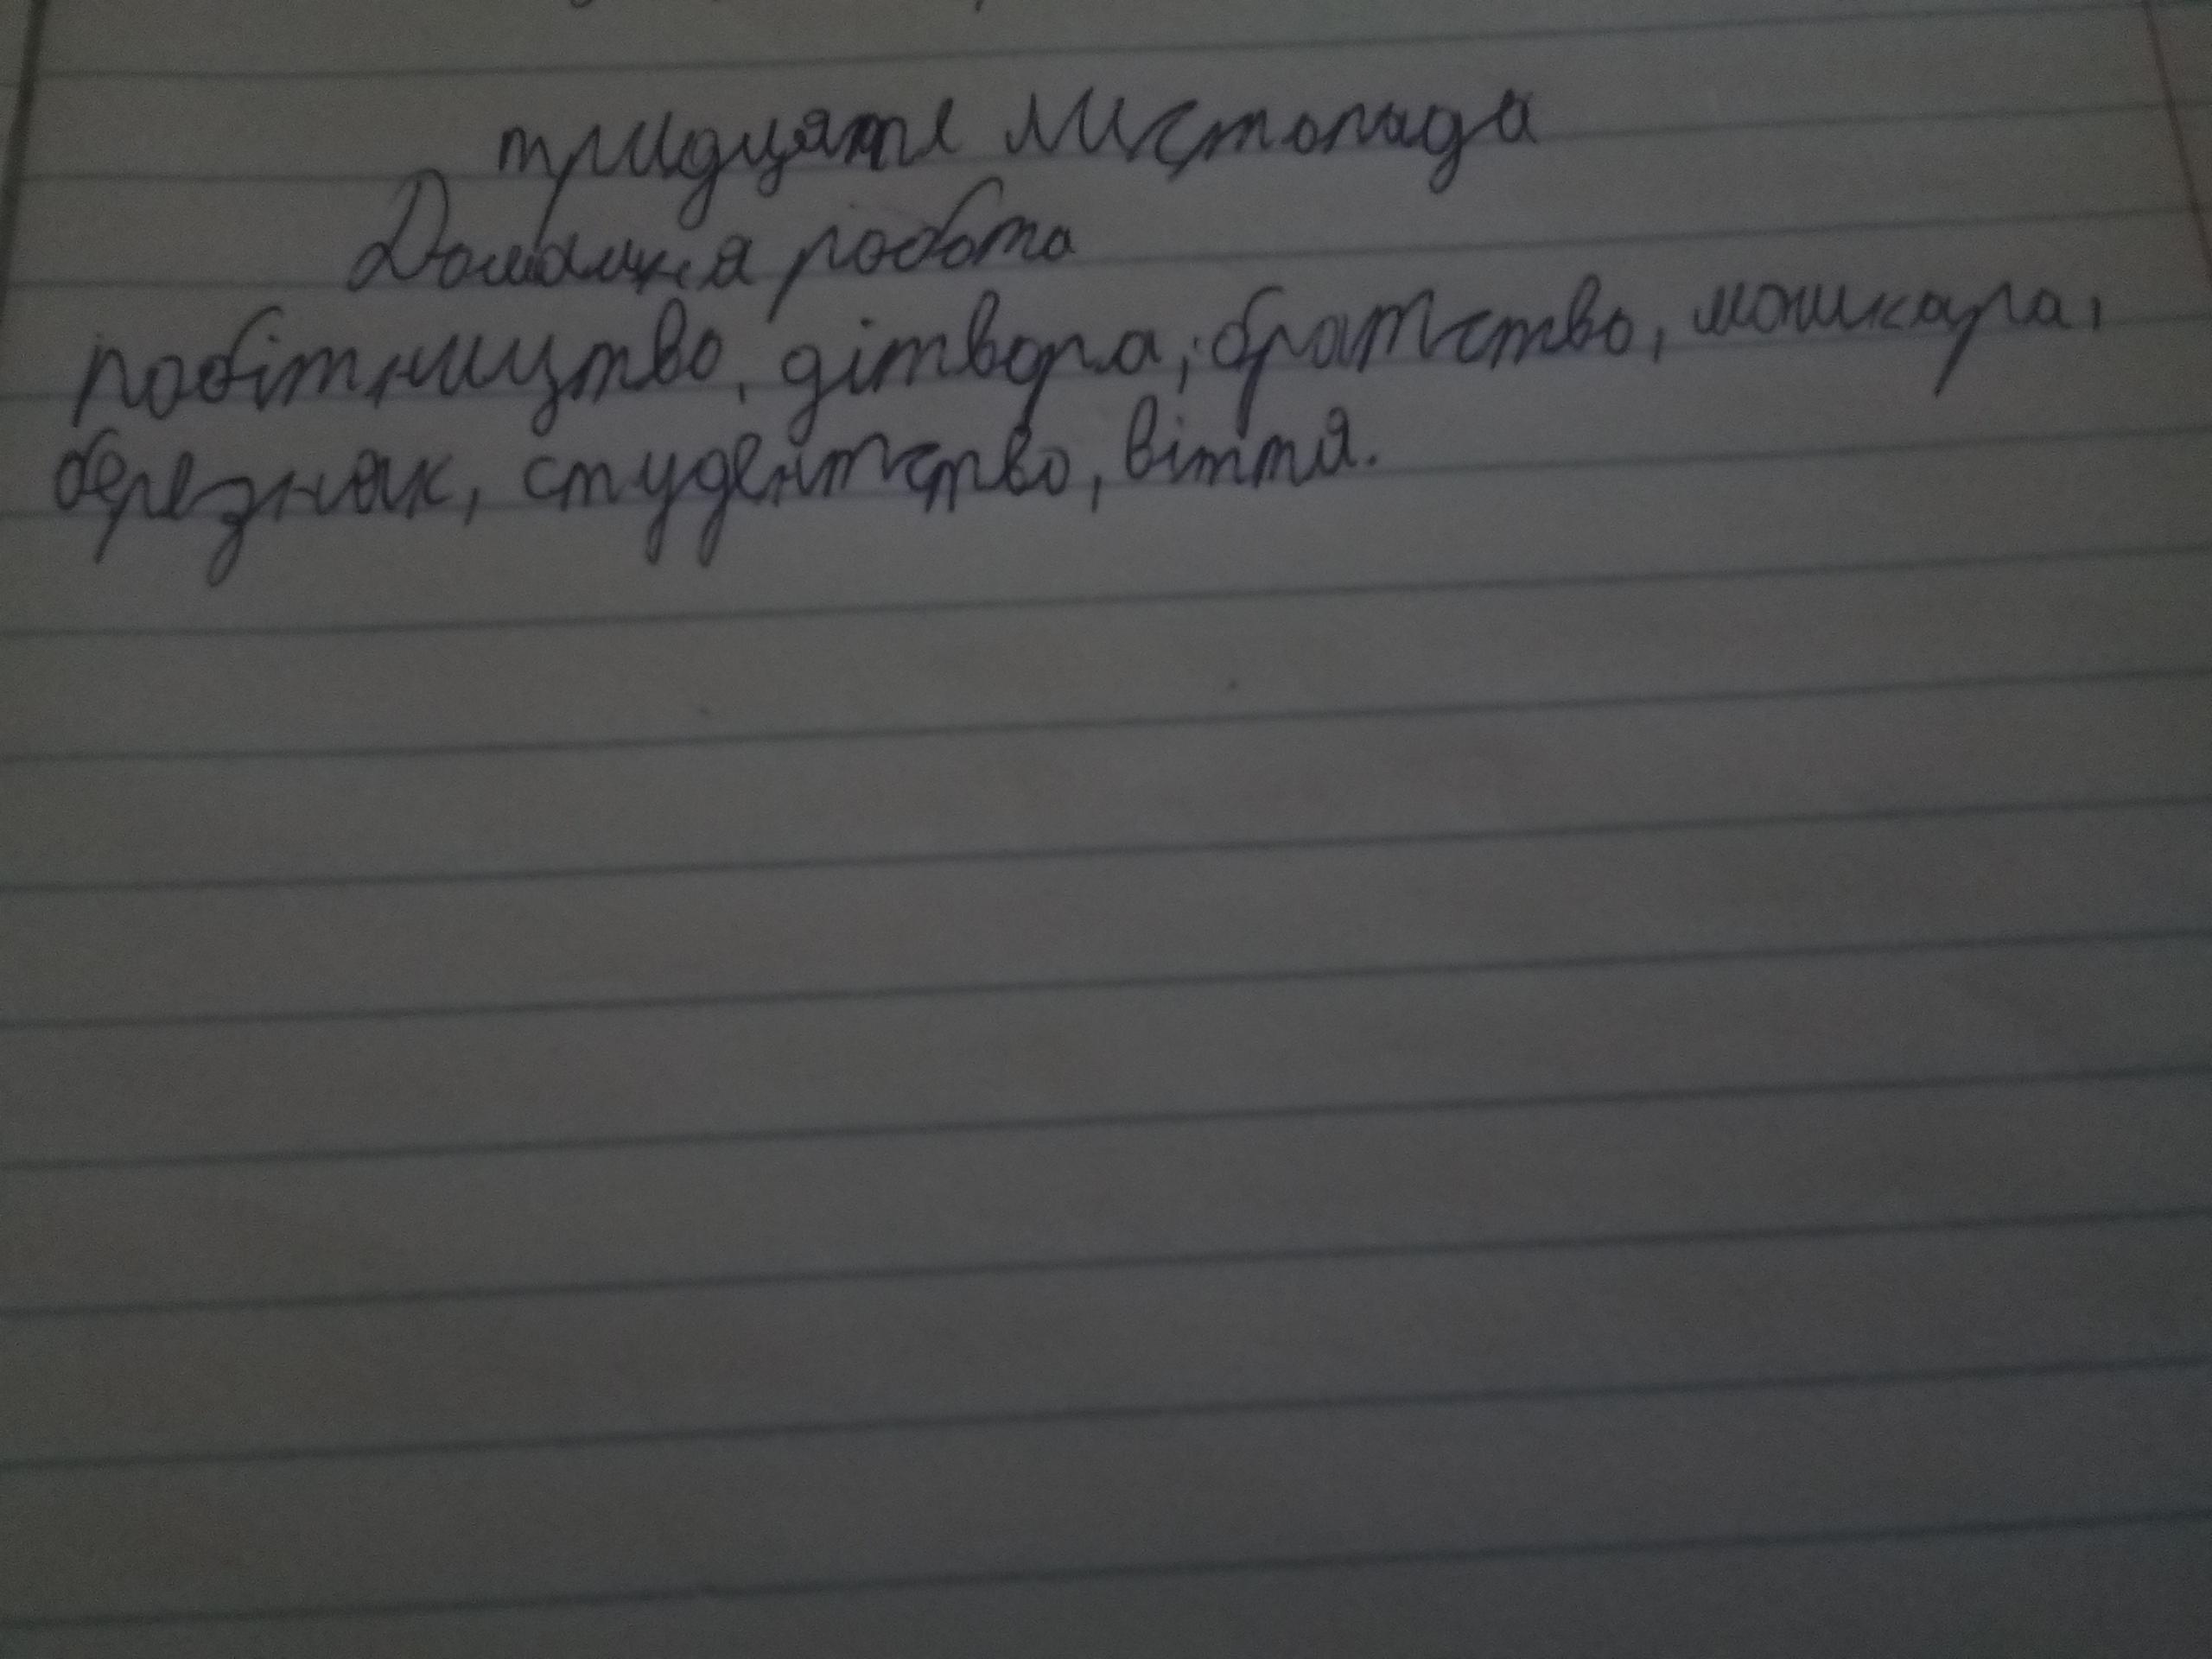 тридцяте листопада
Домашня робота
робітництво, дітвора, братство, мошкара,
березняк, студентство, віття.